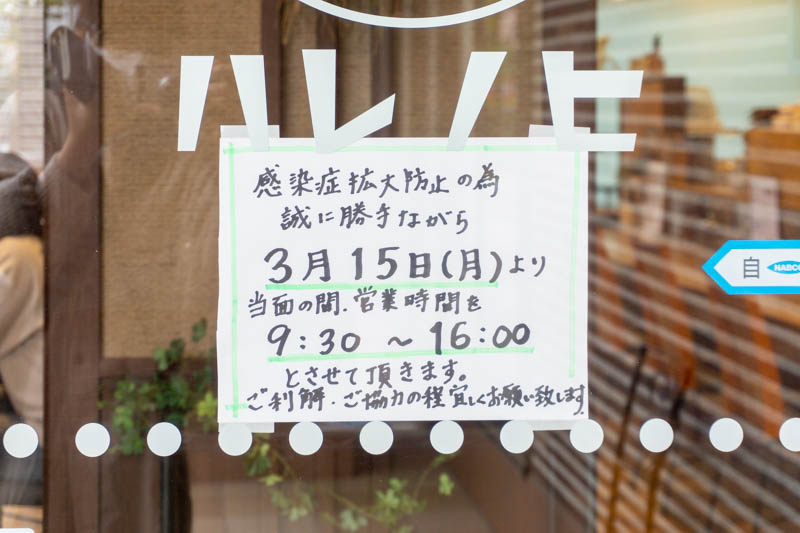 ハレノヒ
感染症拡大防止の為
誠に勝手ながら
3月15日(月)より
当面の間.営業時間を
9:30 ~ 16:00
とさせて頂きます。
ご利解.ご協力の程宜しくお願い致します
自
NABCO